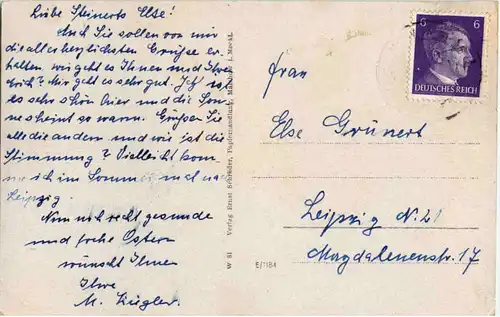 Liebe Steinerts Else!
Auch Sie sollen von mir
die allerherzlichsten Grüsse er-
halten, wie geht es Ihnen und Ihre
Mir geht es sehr gut. Ich
es sehr schön hier und die Son-
ne scheint so warm. Grüßen Sie
alle die andern und wie ist die
Stimmung? Vielleicht kom-
me ich im Sommer mal nach
Leipzig.
Nun noch recht gesunde
und frohe Ostern
wünscht Ihnen
Ihre
M. Ziegler.
W 51 Verlag Ernst Schröder, Papierhandlung, i. Meckl.
E/1184
6 6
DEUTSCHES REICH
Frau
Else Grünert
Leipzig N. 21
Magdalenenstr. 17